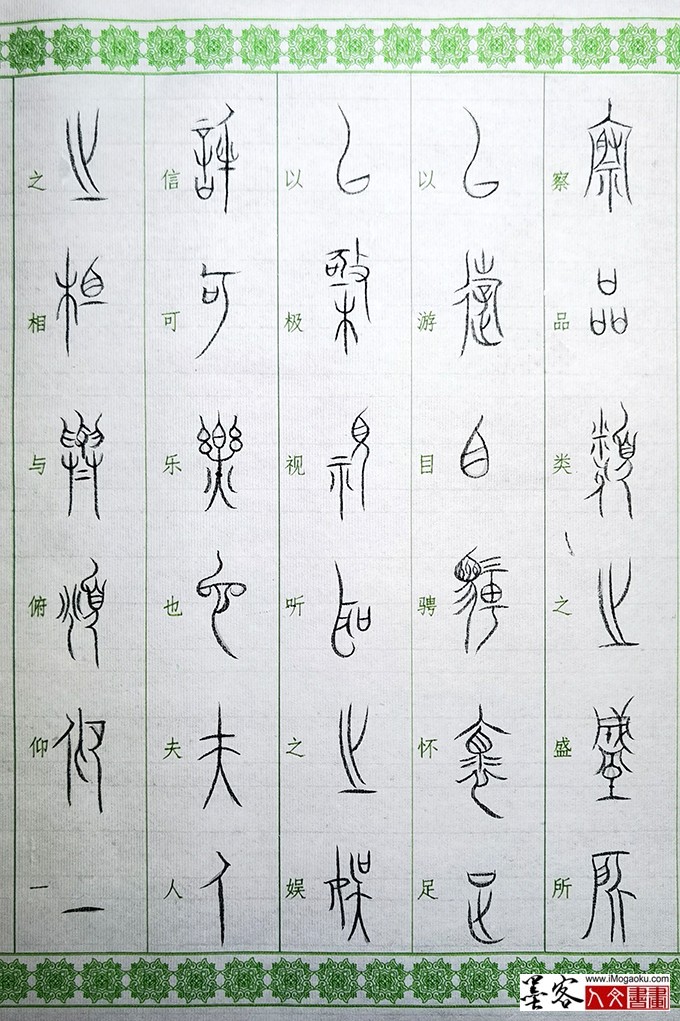 察品类之盛所
以游目骋怀足
以极视听之娱
信可乐也夫人
之相与俯仰一
www.iMogaoku.com
墨客
人文書畫